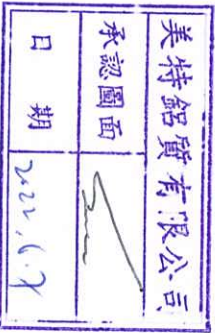 美特鋁質有限公司
承認圖面
日期 2022.6.8